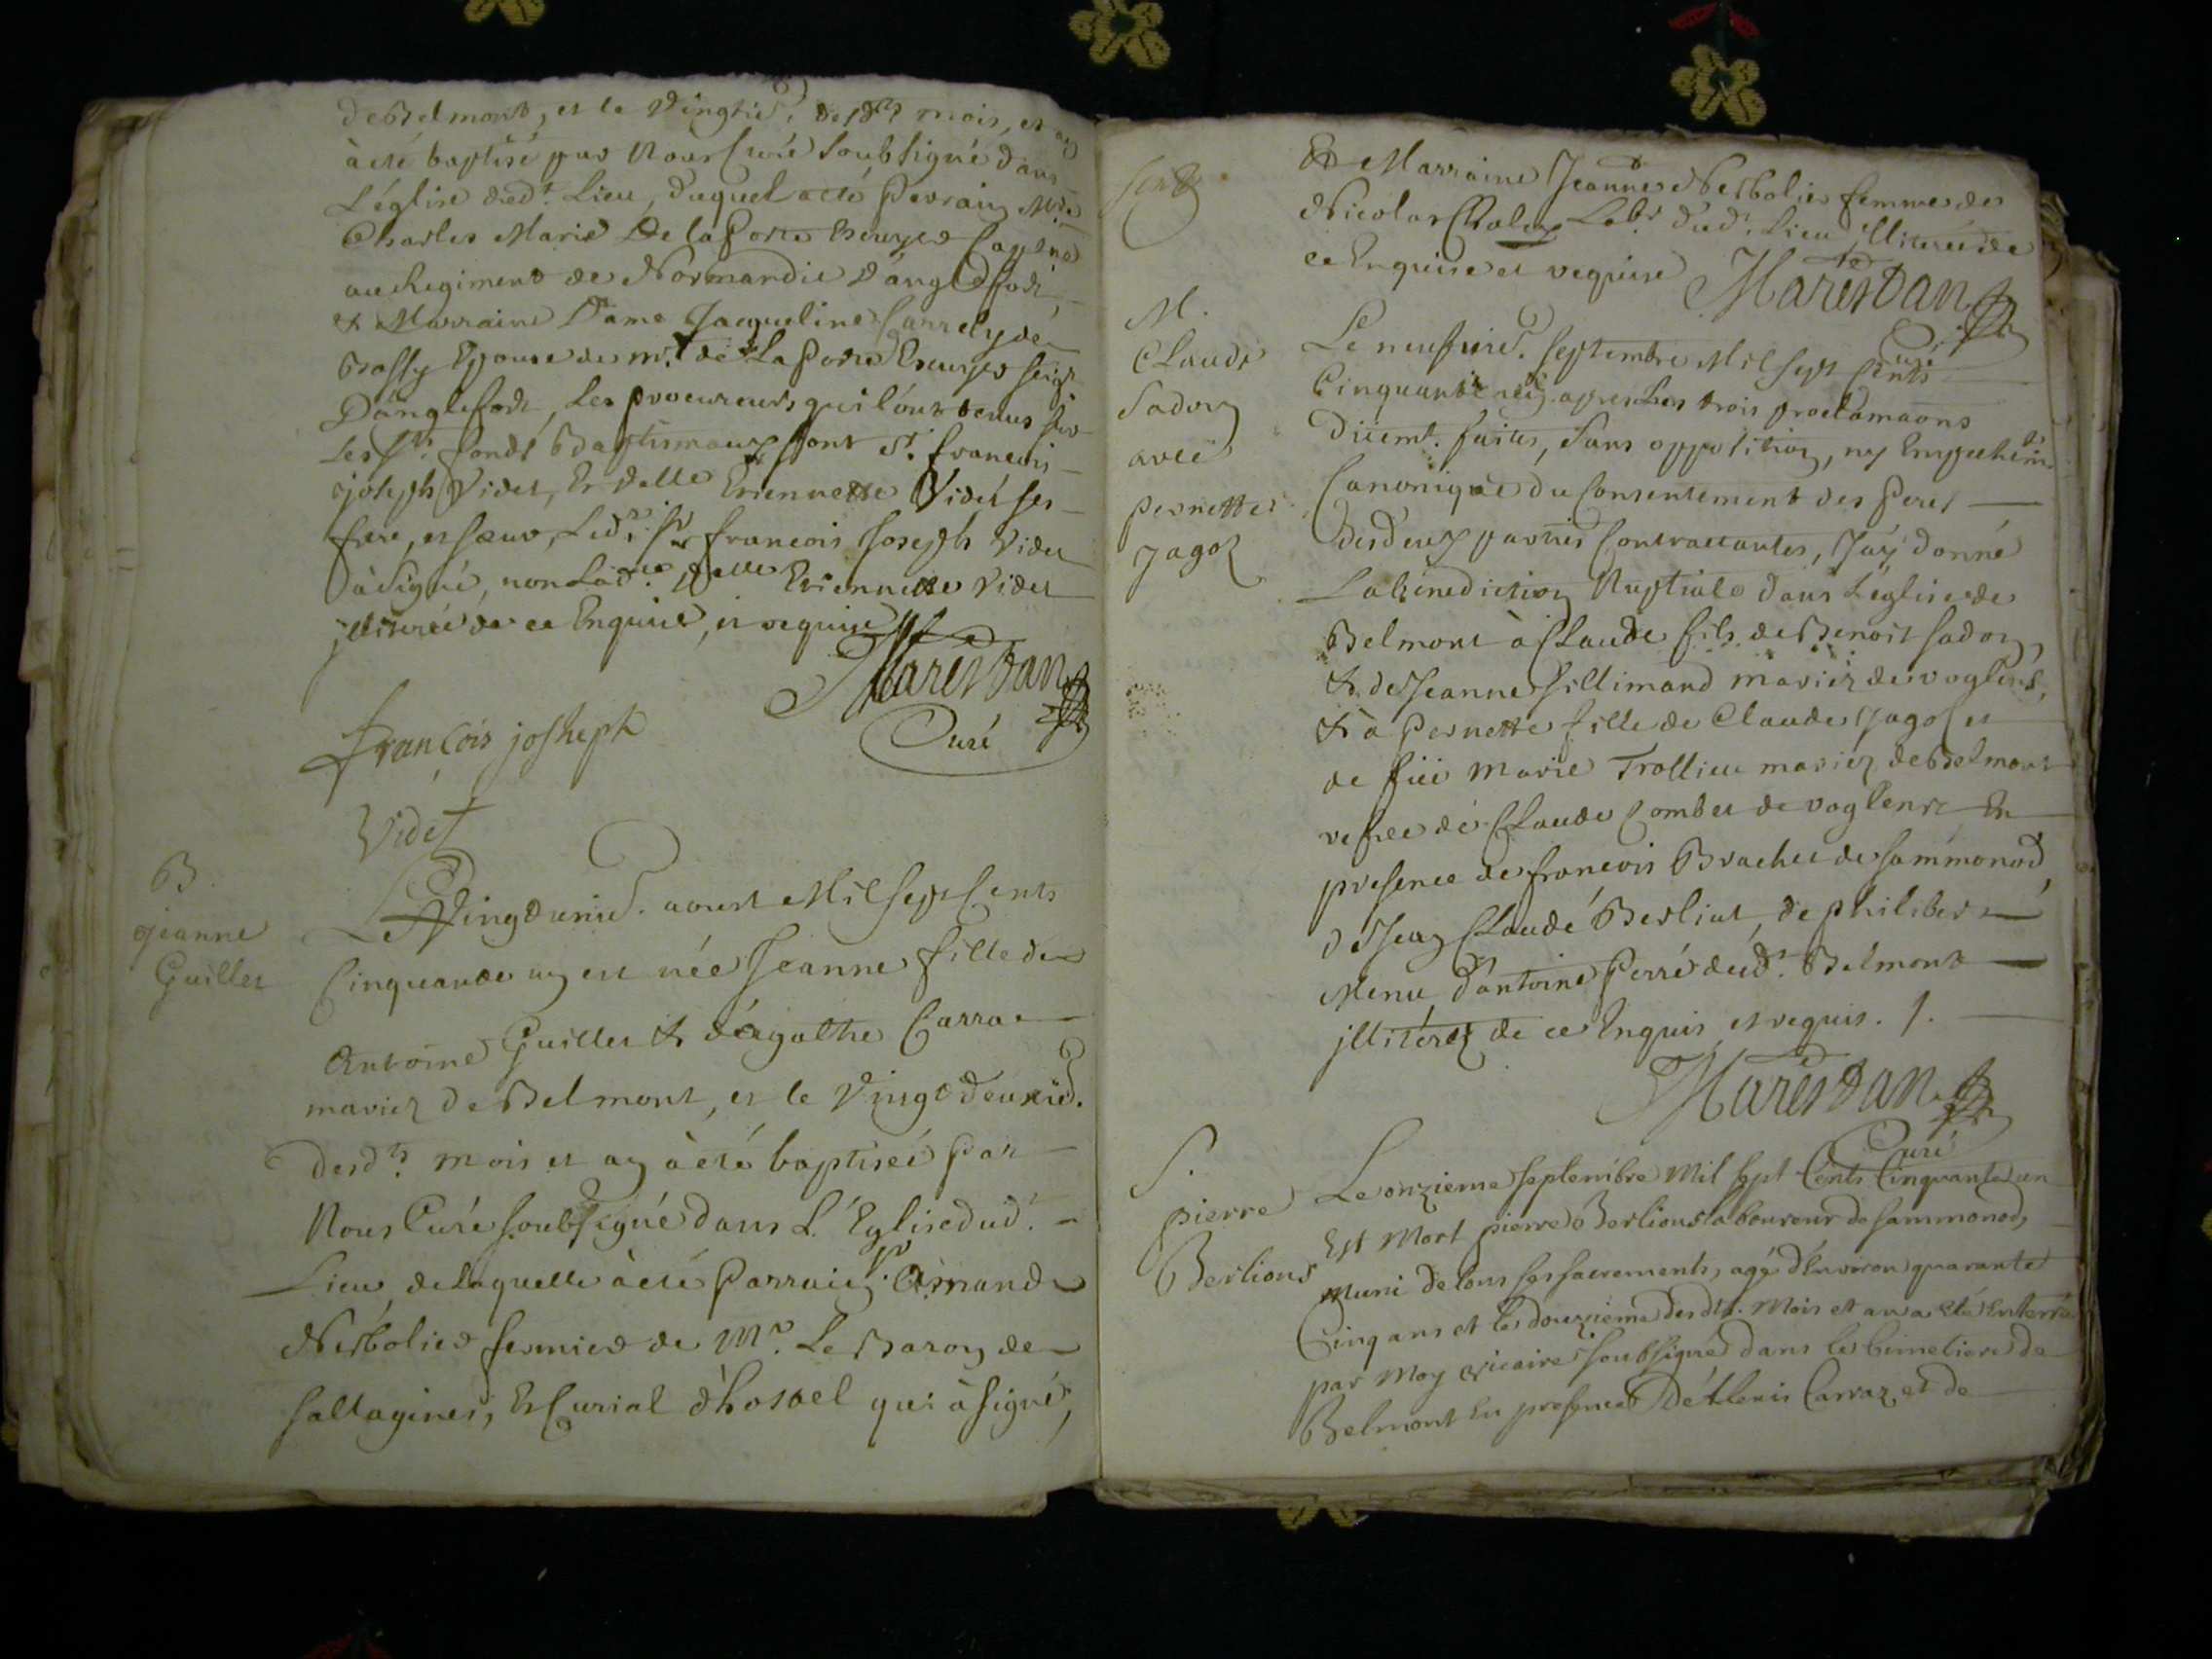 de Belmont, et le Vingtie. desd.ts mois, et an
à eté baptisé par Nous Curé soubsigné dans
L'église dud.t Lieu, duquel a eté Parrain M.re
Charles Marie De la Porte Ecuyer Capne
au Regiment de Normandie d'anglefort,
& Marraine Dame Jacqueline Carrely de
Bassy Epouse de mr. de La Porte Ecuyer seigr
D'anglefort, Les procureurs qui l'ont tenus sur
Les sts. fonds Baptismaux sont sr. francois
joseph Videt, Et delle Etiennette Videt ses
frere, et sœur, Ledt. sr francois Joseph Videt
à signé, non Lad.te delle Etiennette Videt
jlliterée de ce Enquise, et requise
Marestan
Curé
francois josheph
Videt
B.
jeanne
Guillet
Le Vingtunie. aoust Mil sept Cents
Cinquante un est née Jeanne fille de
Antoine Guillet & d'agathe Carra
mariez de Belmont, et le Vingt deuxie.
desd.ts mois et an à eté baptiseé par
Nous Curé soubsigné dans L'Eglise dud.t
Lieu, de laquelle à eté Parrain sr. Amand
Nesbolier fermier de Mr. Le Baron de
sallagine, Et Curial d'hostel qui à signé,
& Marraine Jeanne Nesbolier femme de
Nicolas Chaley Labr. dud.t Lieu jlliterée de
ce Enquise et requise
Marestan
Curé
M.
Claude
Sadon
avec
pernette
Jagot
Le neufvie. septembre Mil sept Cents
Cinquante un apres Les trois proclamaons
Düemt. faites, sans opposition, ny Empechemt.
Canonique du Consentement des Peres
des deux parties Contractantes, J'ay donné
La benediction Nuptiale dans L'église de
Belmont à Claude fils de Benoit sadon,
& de Jeanne fillimand mariez de voglens,
& à Pernette fille de Claude Jagot et
de füe Marie Trollieu mariez de Belmont
vefve de Claude Combet de voglens En
presence de francois Brachet de sammonod,
de Jean Claude Berliat, de philiber
Menu, d'antoine Perré dud.t Belmont
jlliterez de ce Enquis, et requis. /.
Marestan
Curé
S.
pierre
Berlions
Le onzieme septembre Mil sept Cents Cinquante un
Est Mort pierre Berlions laboureur de sammonod,
Muni de tous ses sacrements, agé d'Environ quarante
Cinq ans et le douzieme desdts. Mois et an a eté Enterré
par Moy vicaire soubsigné dans le Cimetiere de
Belmont En presence d'alexis Carraz et de